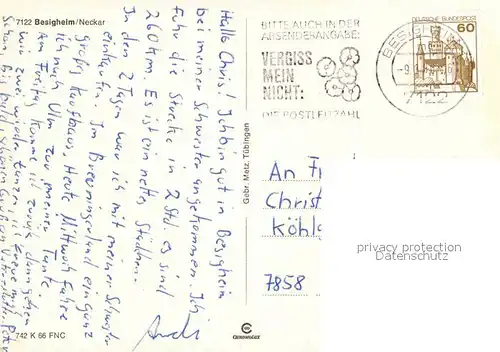 7122 Besigheim/Neckar
Hallo Chris! Ich bin gut in Besigheim
bei meiner Schwester angekommen. Ich
fuhr die Strecke in 2 Std. es sind
260 km. Es ist ein nettes Städtchen.
In den 2 Tagen war ich mit meiner Schwester
einkaufen. Im Breuningerland ein ganz
großes Kaufhaus. Heute Mittwoch fahre
ich nach Ulm zu meiner Tante.
Am Freitag komme ich zurück dann gehen
wir zwei wieder tanzen, ich freue mich
schon, bis bald
742 K 66 FNC
Gebr. Metz, Tübingen
CHROMOLUX
BITTE AUCH IN DER
ABSENDERANGABE:
VERGISS
MEIN
NICHT:
DIE POSTLEITZAHL
BESIGHEIM
7122
DEUTSCHE BUNDESPOST
60
An
Christ
Köhl
7858
privacy protection
Datenschutz